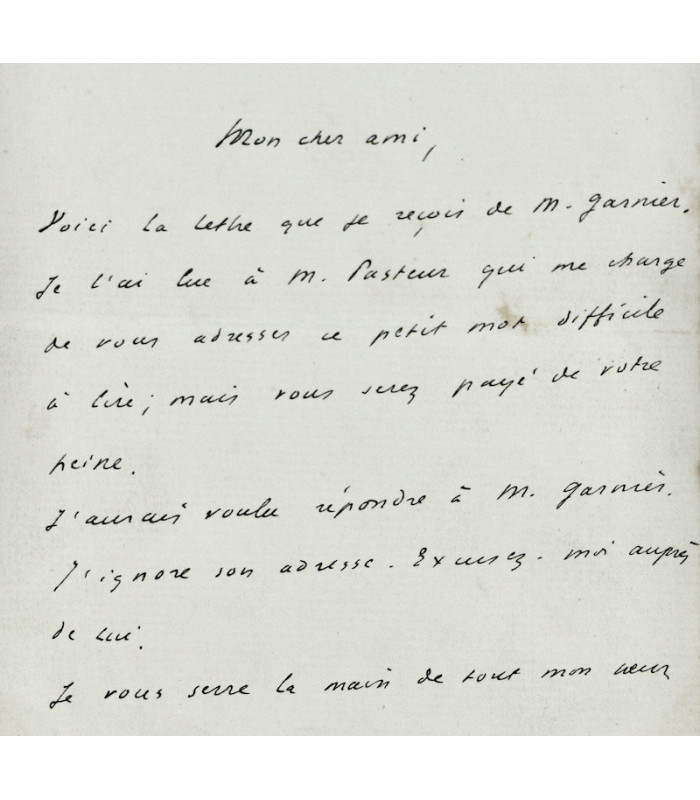 Mon cher ami,
Voici la lettre que je reçois de M. Garnier.
Je l'ai lue à M. Pasteur qui me charge
de vous adresser ce petit mot difficile
à lire; mais vous serez payé de votre
peine.
J'aurais voulu répondre à M. Garnier.
J'ignore son adresse. Excusez-moi auprès
de lui.
Je vous serre la main de tout mon cœur